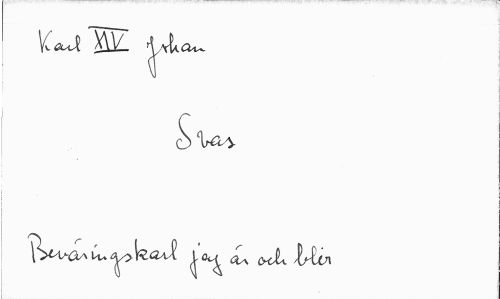 Karl XIV Johan
Svas
Beväringskarl jag är och blir